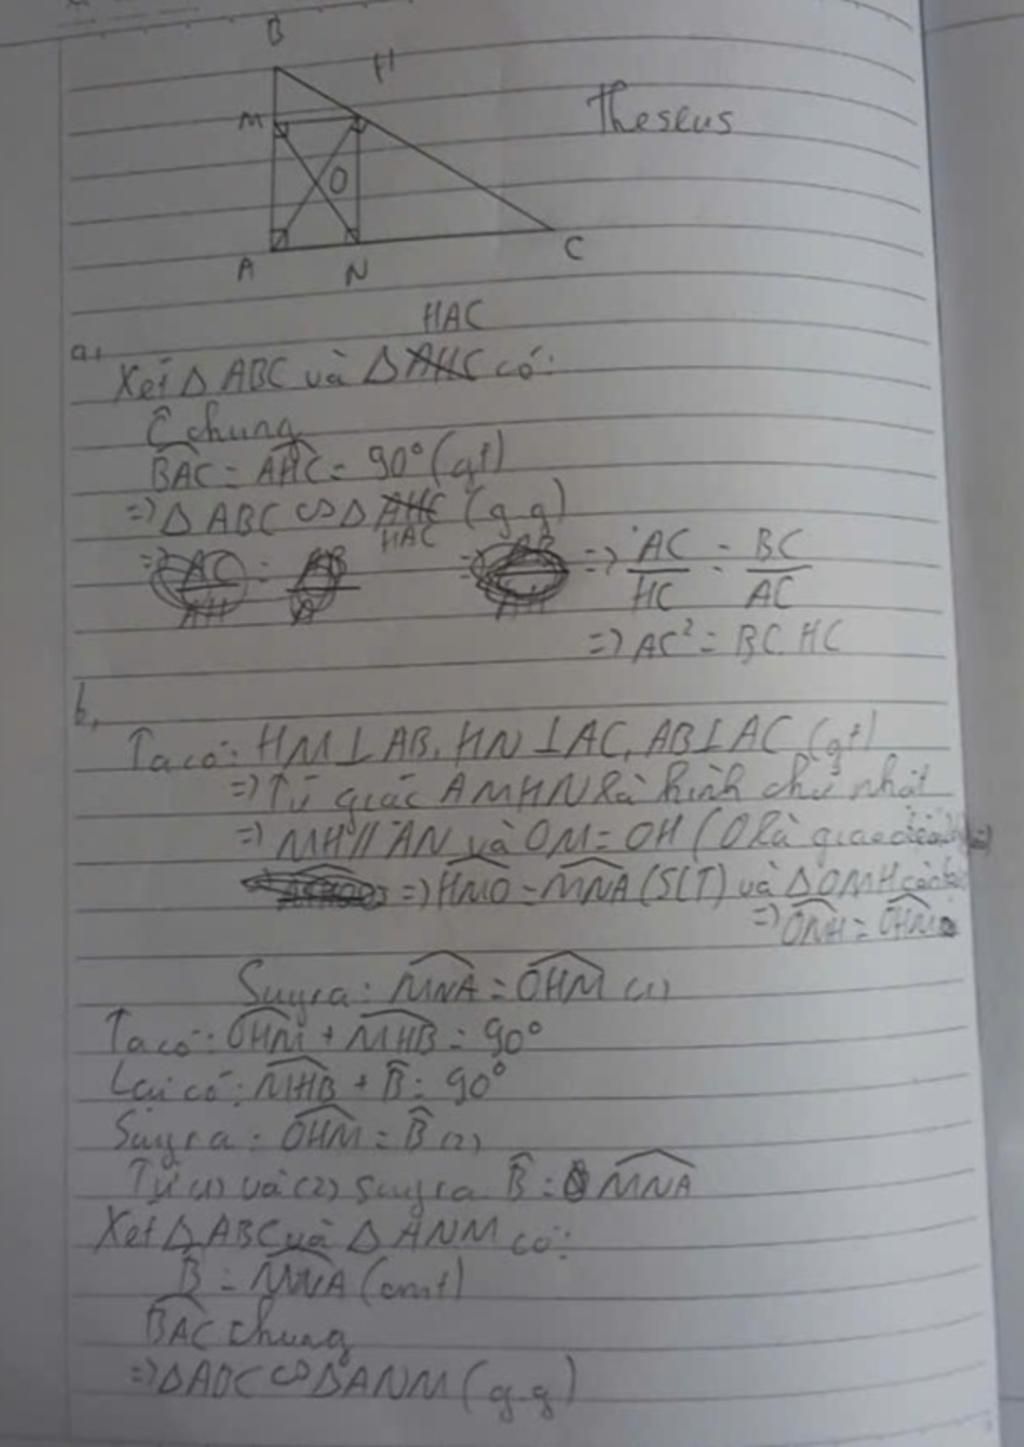 B
H
M
Theseus
O
A
N
C
HAC
a,
Xét Δ ABC và Δ AHC có:
Ĉ chung
BAC = AHC = 90° (gt)
=> Δ ABC ∽ Δ AHC (g.g)
HAC
=> AC/HC = BC/AC
=> AC² = BC.HC
b,
Ta có: HM⊥AB, HN⊥AC, AB⊥AC (gt)
=> Tứ giác AMHN là hình chữ nhật
=> MH // AN và OM = OH (O là giao điểm
=> HMO = MNA (SLT) và Δ OMH cân
=> OMH = OHM
Suy ra: MNA = OHM (1)
Ta có: OHM + MHB = 90°
Lại có: MHB + B̂ = 90°
Suy ra: OHM = B̂ (2)
Từ (1) và (2) suy ra B̂ = MNA
Xét Δ ABC và Δ ANM có:
B̂ = MNA (cmt)
BAC chung
=> Δ ABC ∽ Δ ANM (g.g)